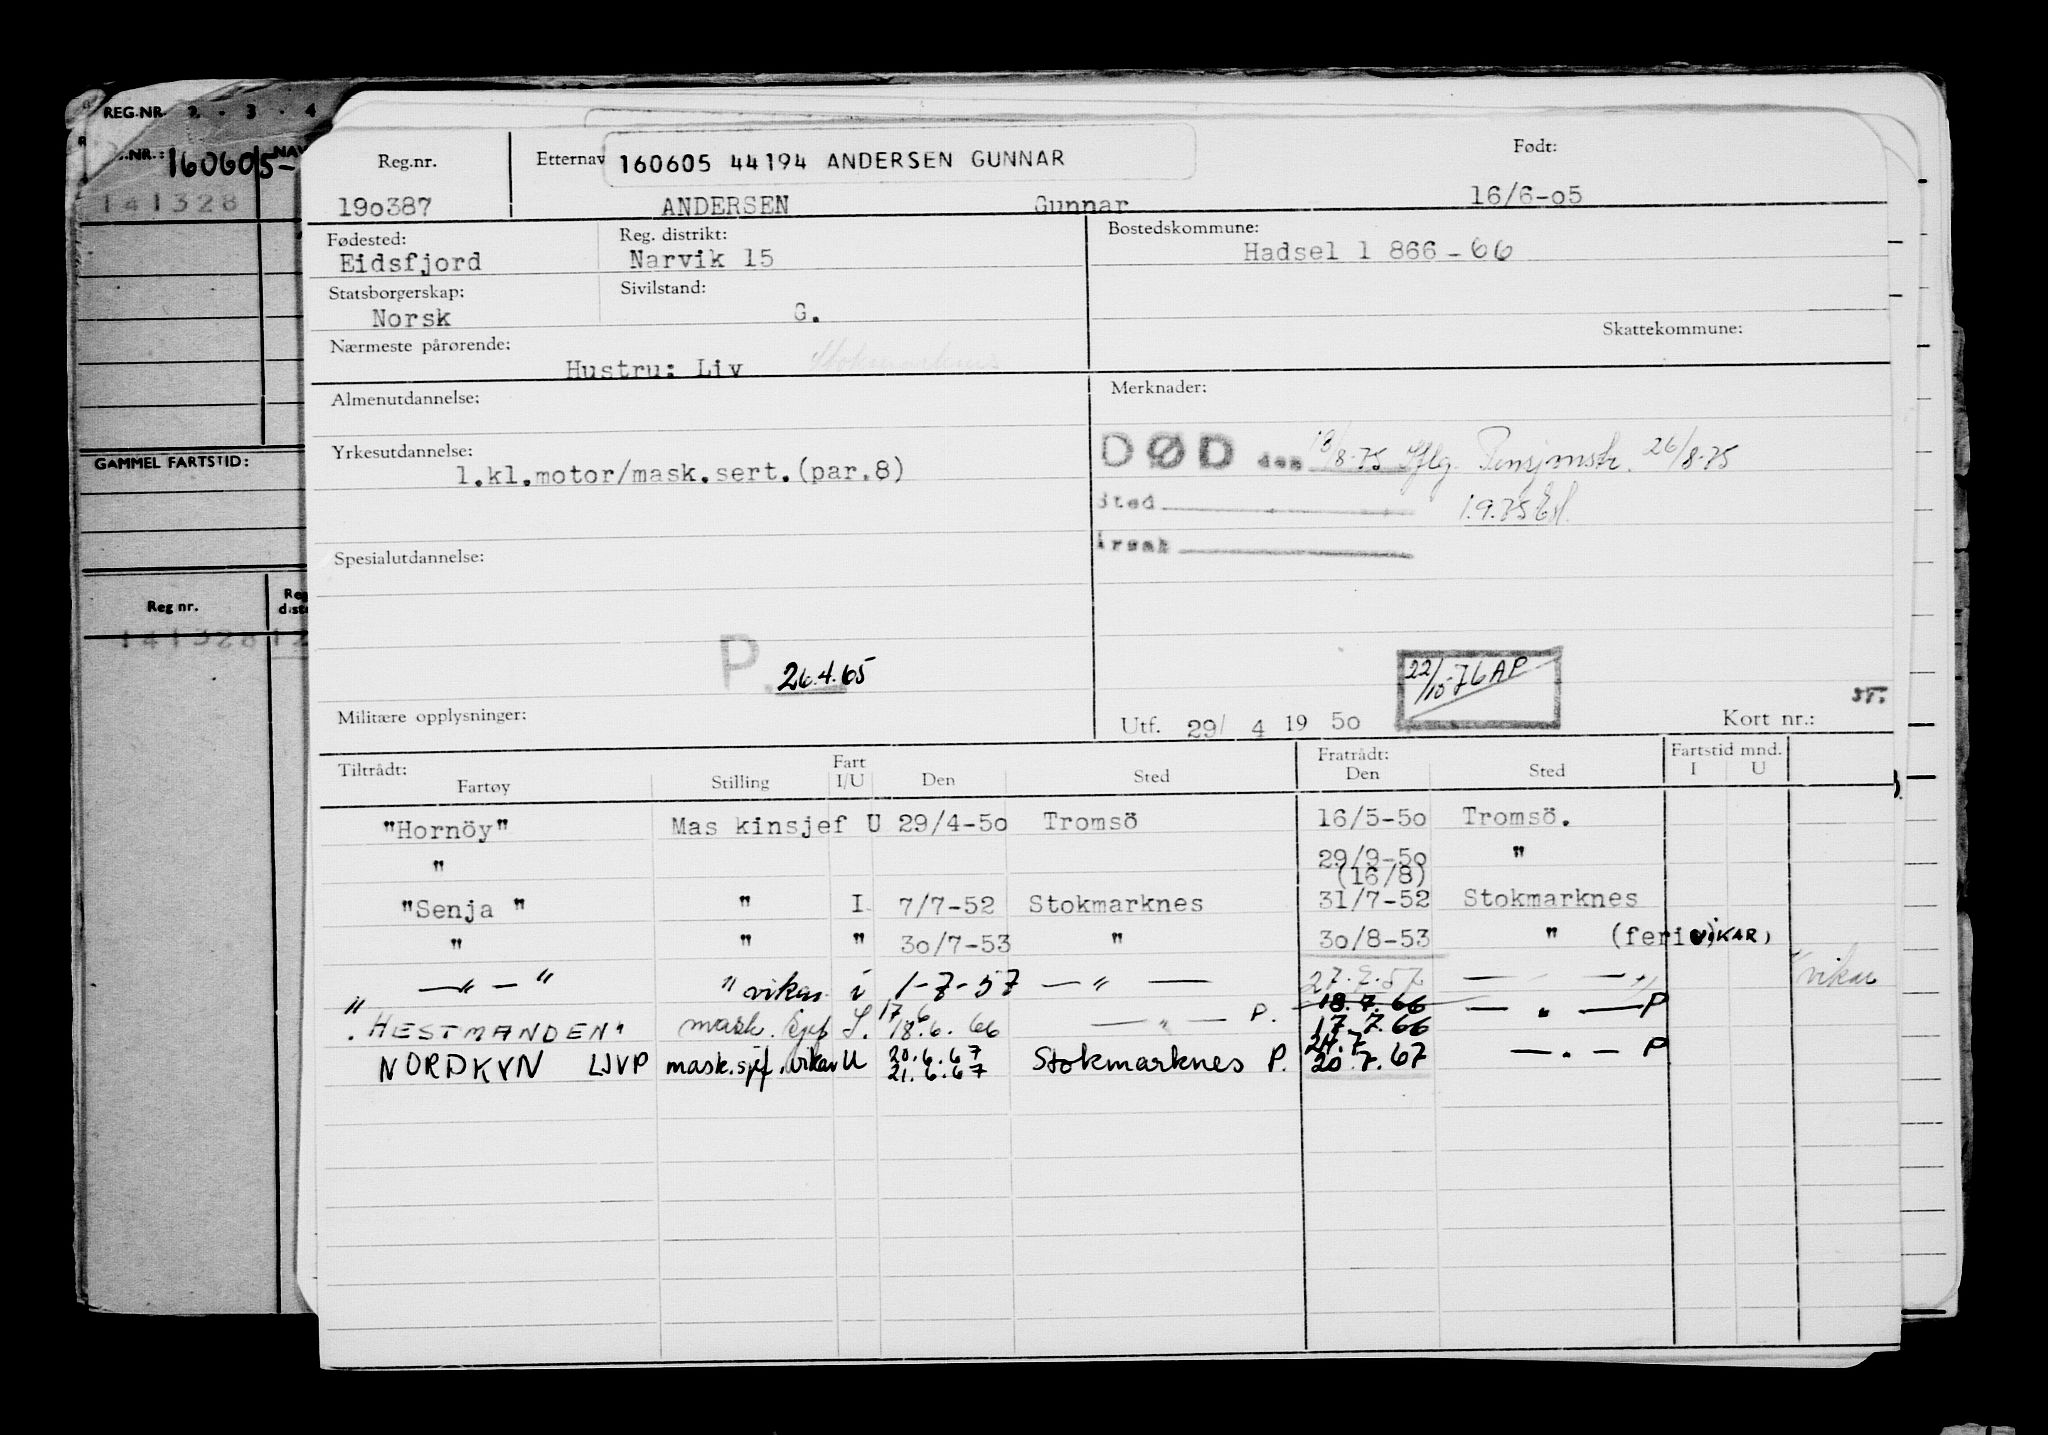 REG.NR. 2 . 3 . 4
.NR.: 160605- NAV
141328
GAMMEL FARTSTID:
Reg nr. Reg dist
141328 12
Reg.nr. Etternav 160605 44194 ANDERSEN GUNNAR Født:
190387 ANDERSEN Gunnar 16/6-05
Fødested: Reg. distrikt: Bostedskommune:
Eidsfjord Narvik 15 Hadsel 1 866 - 66
Statsborgerskap: Sivilstand:
Norsk G.
Skattekommune:
Nærmeste pårørende:
Hustru: Liv Stokmarknes
Almenutdannelse: Merknader:
Yrkesutdannelse: DØD den 18/8-75 Iflg. Pensjonstr. 26/8-75
1.kl.motor/mask.sert.(par.8)
Sted 1.9.75
Årsak
Spesialutdannelse:
P. 26.4.65
22/10-76 AP
Militære opplysninger: Utf. 29/ 4 19 50 Kort nr.:
Tiltrådt: Fart Fratrådt: Fartstid mnd.
Fartøy Stilling I/U Den Sted Den Sted I U
"Hornöy" Mas kinsjef U 29/4-50 Tromsö 16/5-50 Tromsö.
" 29/9-50 "
(16/8)
"Senja " " I 7/7-52 Stokmarknes 31/7-52 Stokmarknes
" " " 30/7-53 " 30/8-53 " (ferieVIKAR)
— " — " " vikar i 1-7-57 — " — — " — " vikar
18.7.66
"HESTMANDEN" mask. sjef I. 17 6 18.6.66 — " — P. 17.7.66 — " — P
24.7
NORDKYN LJVP mask.sjef.vikar U 20.6.67 21.6.67 Stokmarknes P. 20.7.67 — " — P